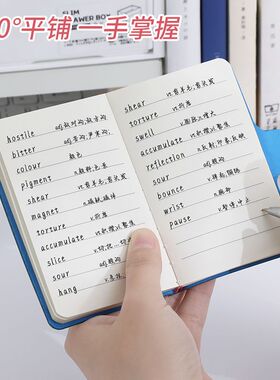 0°平铺 一手掌握
SLIM
DRAWER BOX
hostile adj.敌对的,敌方的
bitter adj.苦的,严寒的
colour 颜色
pigment n.颜料,色素
shear vt.剪羊毛,剪头发
magnet n.磁铁,磁体
torture n.折磨
accumulate vt.积攒 vi.聚集
slice v.切…
sour adj.酸的
hang v.悬挂
shear vt.剪羊毛,剪头发
torture vt.折磨
swell v.膨胀,增大
accumulate vt.积攒 vi.聚集
reflection n.反射,印象,反映
sour adj.酸的
bounce v.弹起,弹回
wrist n.手腕
pause v.暂停,中止